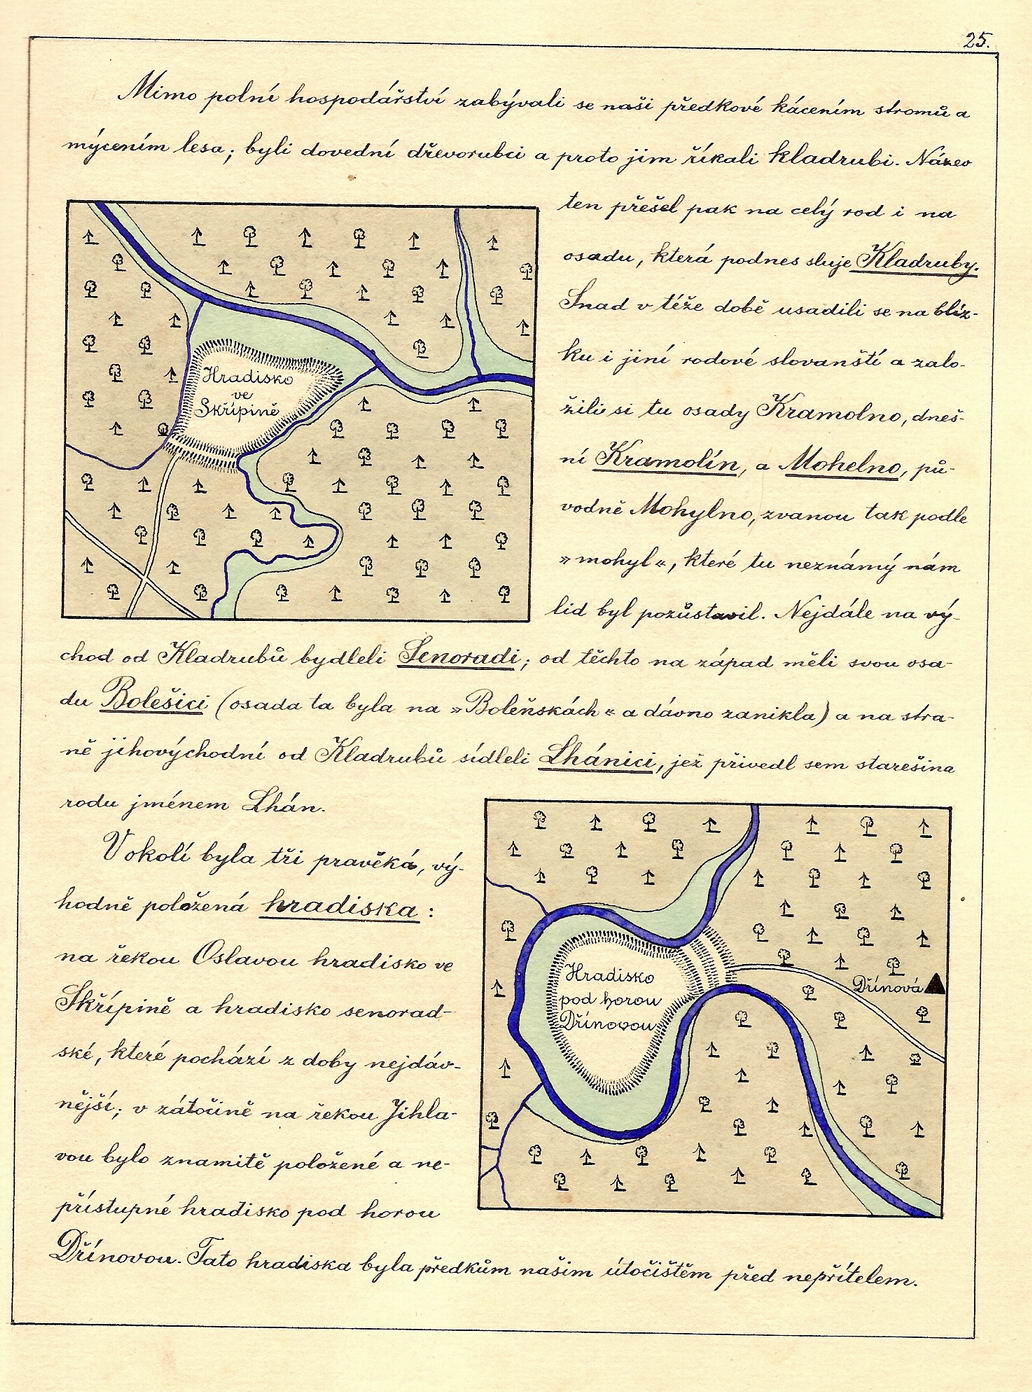 25.
Mimo polní hospodářství zabývali se naši předkové kácením stromů a
mýcením lesa; byli dovední dřevorubci a proto jim říkali kladrubi. Název
ten přešel pak na celý rod i na
osadu, která podnes sluje Kladruby.
Snad v téže době usadili se na blíz-
ku i jiní rodové slovanští a zalo-
žili si tu osady Kramolno, dneš-
ní Kramolín, a Mohelno, pů-
vodně Mohylno, zvanou tak podle
„mohyl“, které tu neznámý nám
lid byl pozůstavil. Nejdále na vý-
chod od Kladrubů bydleli Senoradi; od těchto na západ měli svou osa-
du Bolešici (osada ta byla na „Boleňskách“ a dávno zanikla) a na stra-
ně jihovýchodní od Kladrubů sídleli Lhánici, jež přivedl sem starešina
rodu jménem Lhán.
V okolí byla tři pravěká, vý-
hodně položená hradiska:
na řekou Oslavou hradisko ve
Skřípině a hradisko senorad-
ské, které pochází z doby nejdáv-
nější; v zátočině na řekou Jihla-
vou bylo znamitě položené a ne-
přístupné hradisko pod horou
Dřínovou. Tato hradiska byla předkům našim útočištěm před nepřítelem.
Hradisko
ve
Skřípině
Hradisko
pod horou
Dřínovou
Dřínová